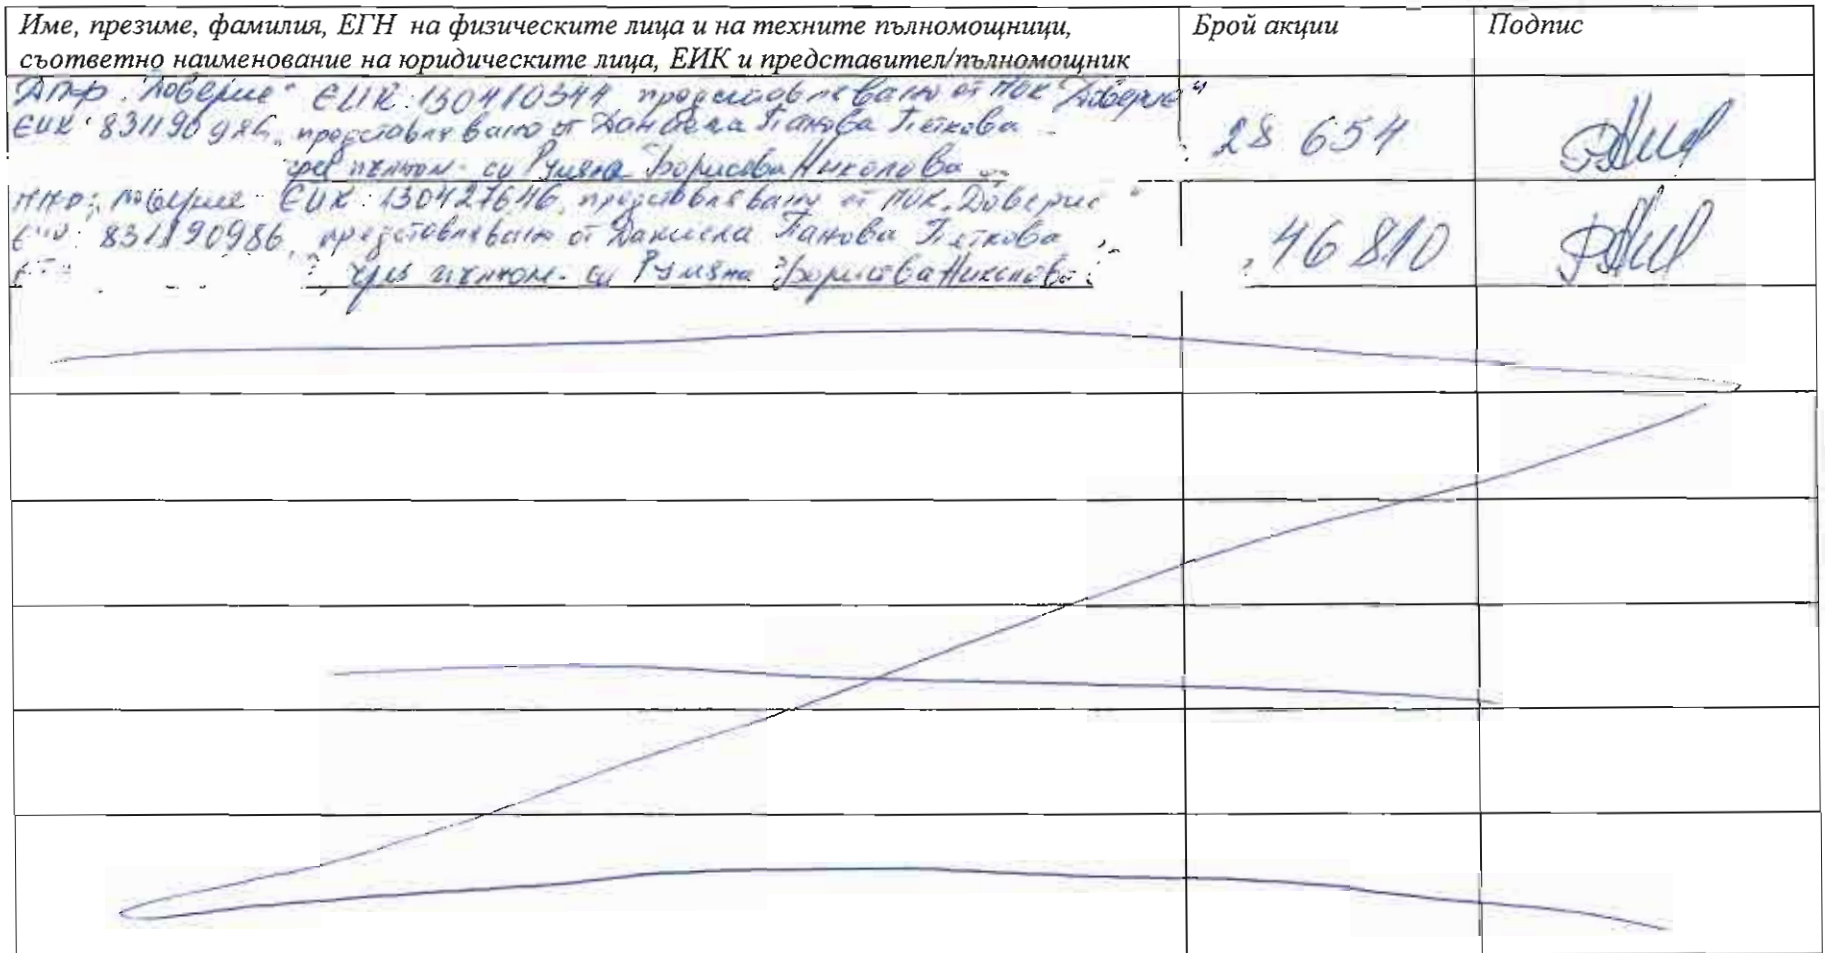 Име, презиме, фамилия, ЕГН на физическите лица и на техните пълномощници,
съответно наименование на юридическите лица, ЕИК и представител/пълномощник
Брой акции
Подпис
ДПФ "Доверие" ЕИК: 130410344 представлявано от ПОК "Доверие"
ЕИК: 831190986, представлявано от Даниела Панова Петкова
чрез пълном. си Румяна Борисова Николова
28 654
ППФ "Доверие" ЕИК: 130427646, представлявано от ПОК "Доверие"
ЕИК: 831190986, представлявано от Даниела Панова Петкова
чрез пълном. си Румяна Борисова Николова
46 810